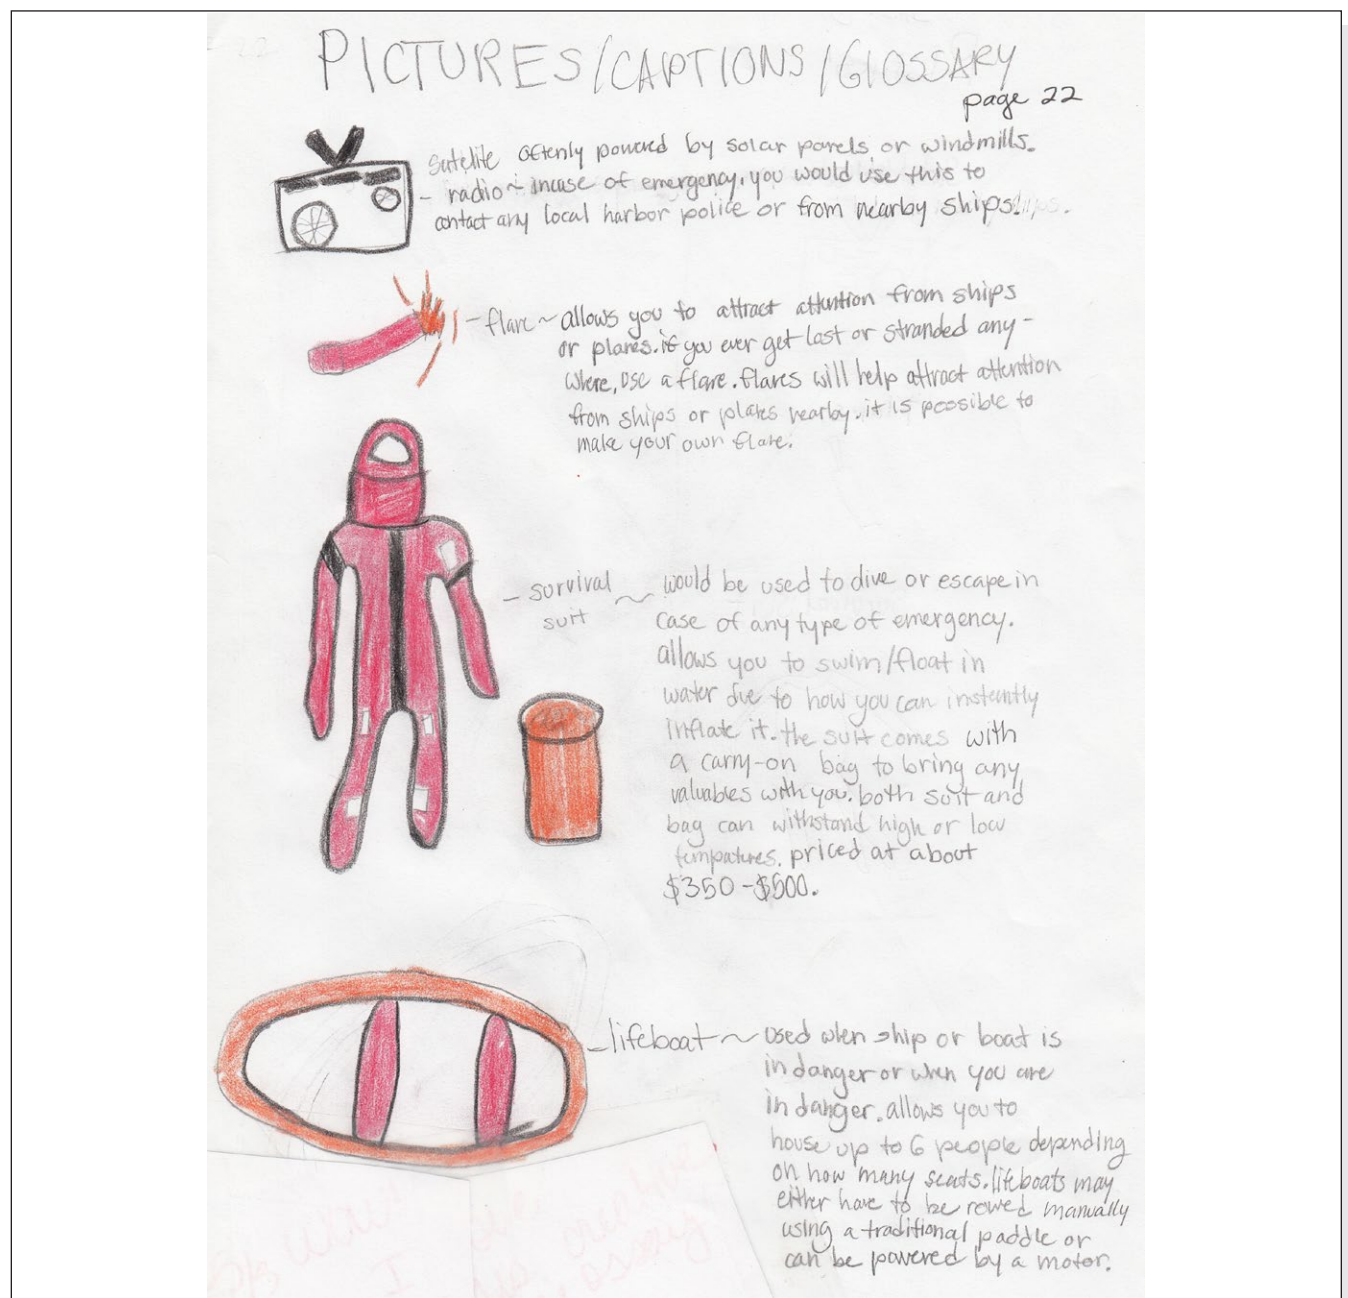 PICTURES/CAPTIONS/GLOSSARY
page 22
Satelite oftenly powered by solar panels or windmills.
- radio ~ incase of emergency, you would use this to
contact any local harbor police or from nearby ships.
- flare ~ allows you to attract attention from ships
or planes. if you ever get lost or stranded any-
where, use a flare. flares will help attract attention
from ships or planes nearby. it is possible to
make your own flare.
- survival suit ~ would be used to dive or escape in
case of any type of emergency.
allows you to swim/float in
water due to how you can instantly
inflate it. the suit comes with
a carry-on bag to bring any
valuables with you. both suit and
bag can withstand high or low
tempatures. priced at about
$350-$500.
- lifeboat ~ used when ship or boat is
in danger or when you are
in danger. allows you to
house up to 6 people depending
on how many seats. lifeboats may
either have to be rowed manually
using a traditional paddle or
can be powered by a motor.